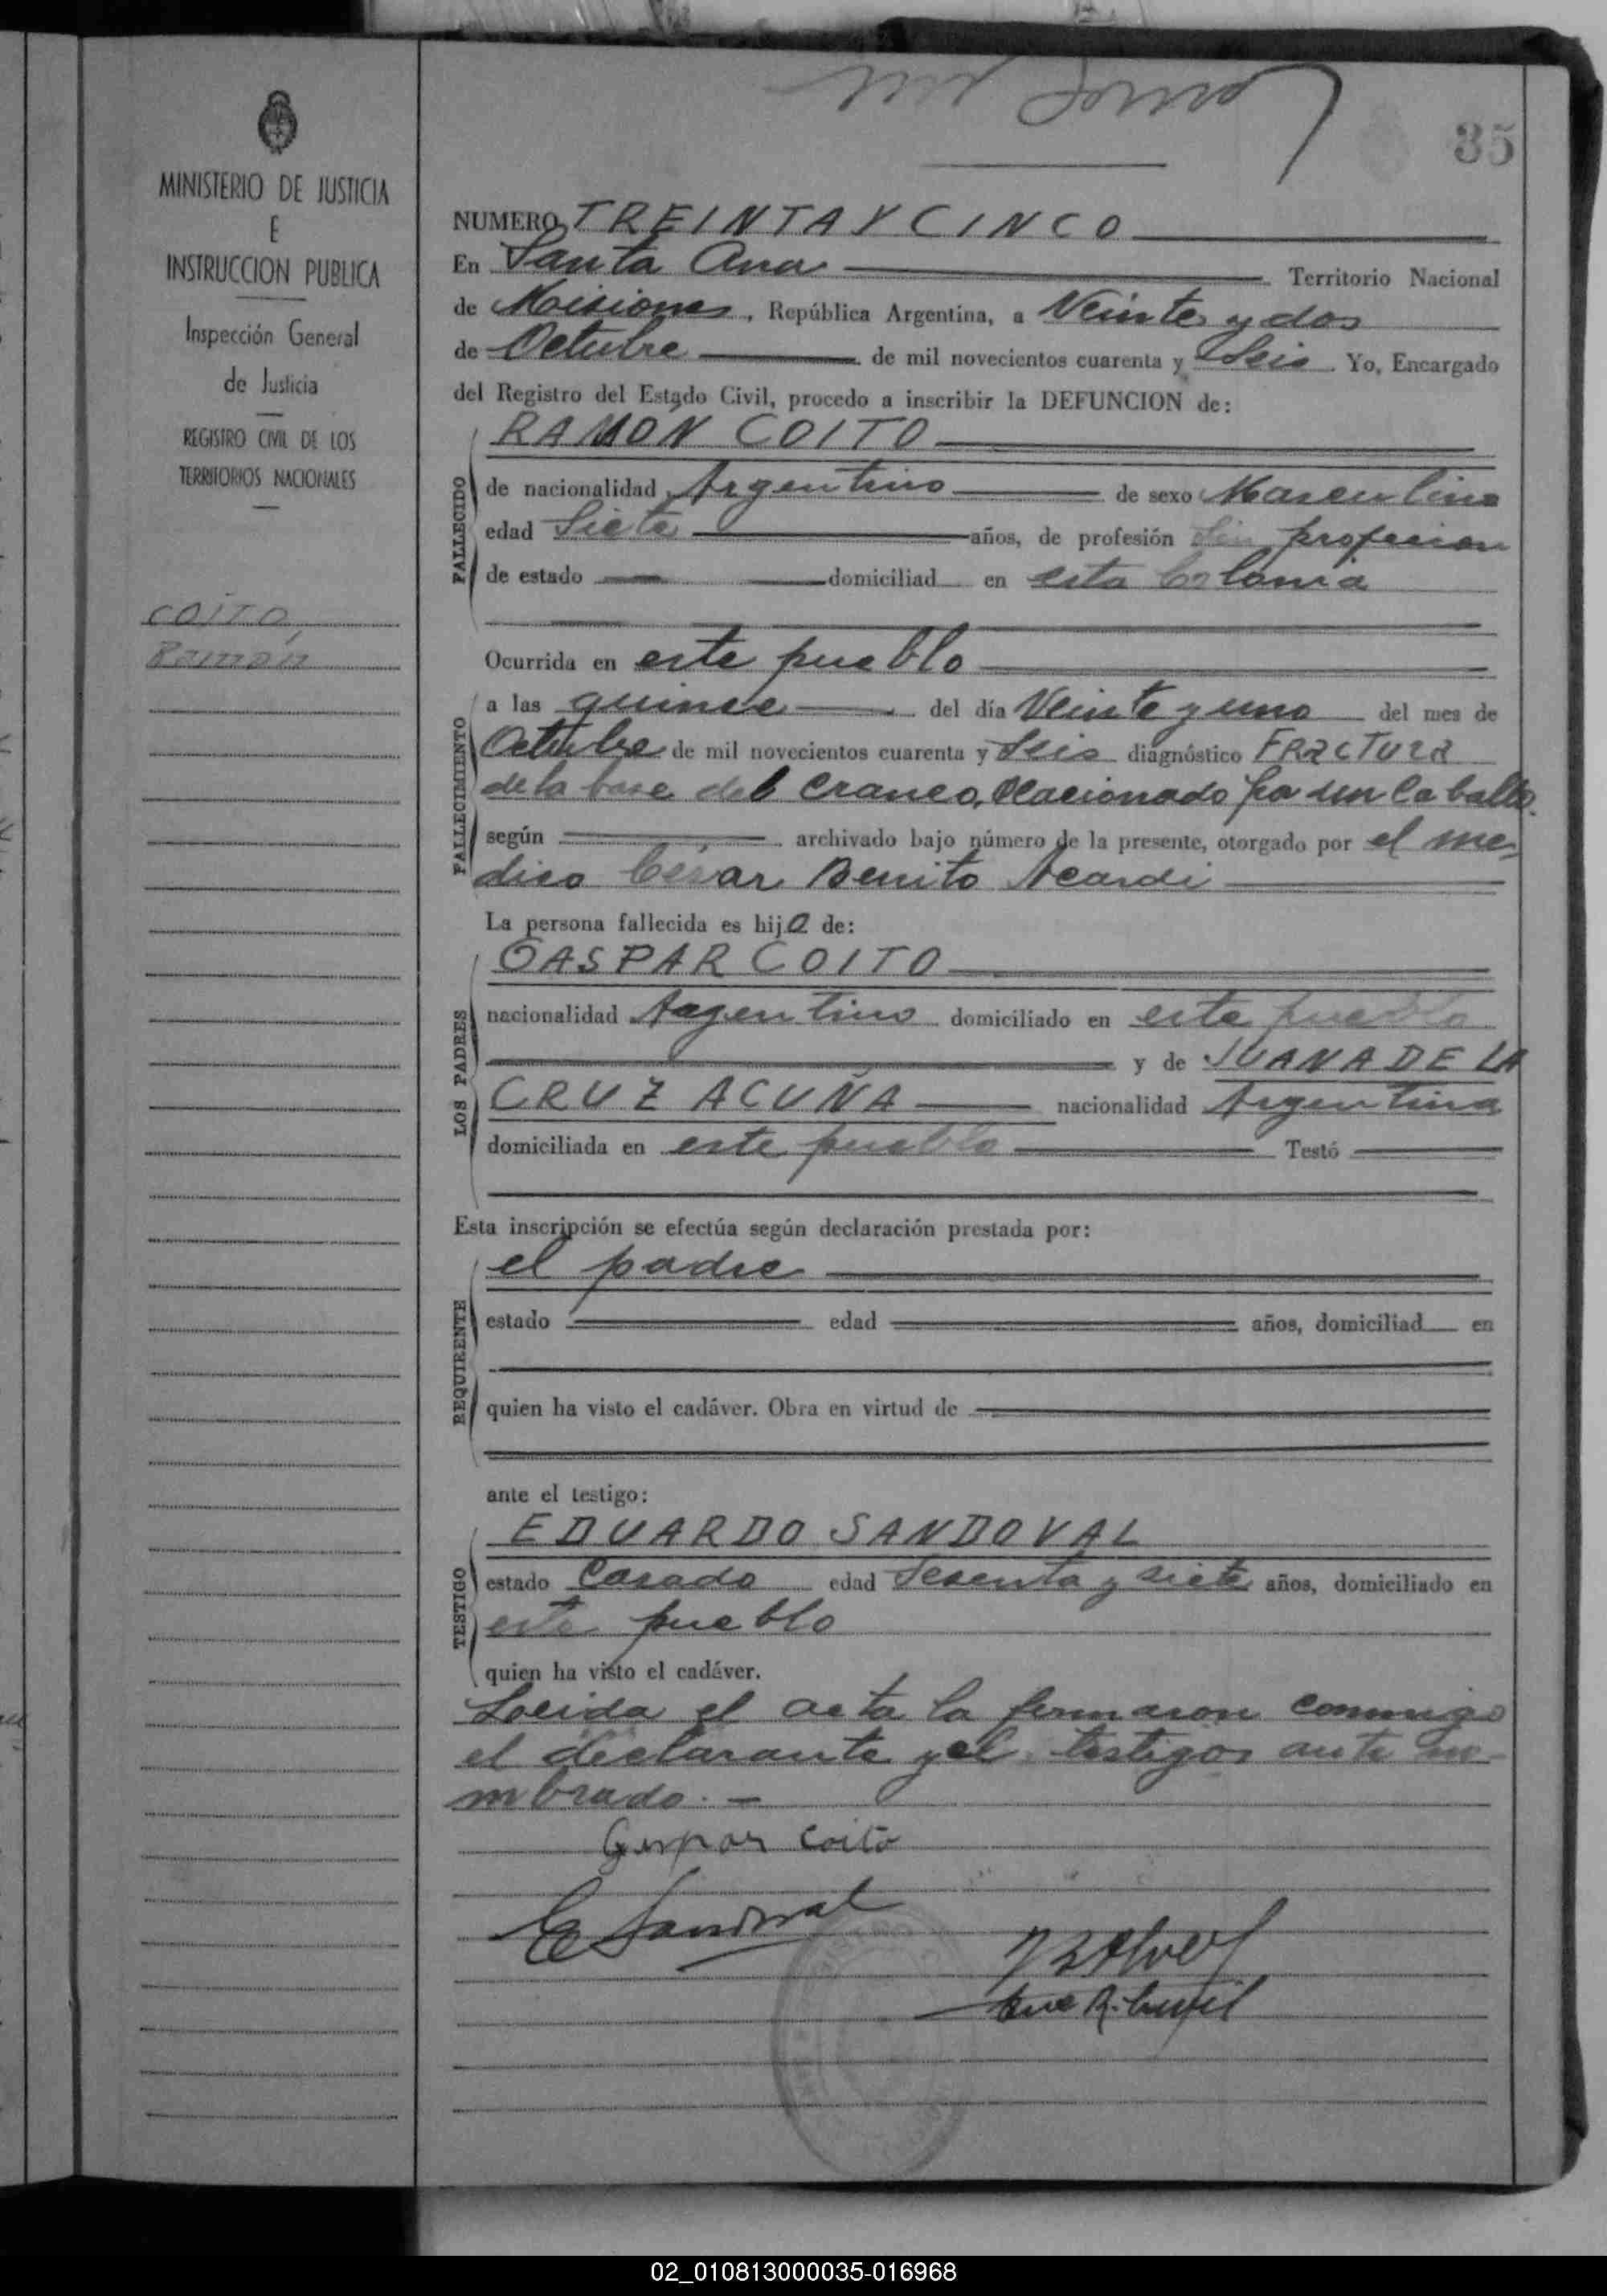 35
MINISTERIO DE JUSTICIA
E
INSTRUCCION PUBLICA
Inspección General
de Justicia
REGISTRO CIVIL DE LOS
TERRITORIOS NACIONALES
COITO,
Ramón
NUMERO TREINTA Y CINCO
En Santa Ana Territorio Nacional
de Misiones, República Argentina, a Veinte y dos
de Octubre de mil novecientos cuarenta y Seis. Yo, Encargado
del Registro del Estado Civil, procedo a inscribir la DEFUNCION de:
RAMÓN COITO
FALLECIDO
de nacionalidad Argentino de sexo Masculino
edad Siete años, de profesión Sin profecion
de estado domiciliad en esta Colonia
Ocurrida en este pueblo
FALLECIMIENTO
a las quince del día Veinte y uno del mes de
Octubre de mil novecientos cuarenta y Seis diagnóstico FRACTURA
de la base del craneo, Ocacionado por un Caballo.
según archivado bajo número de la presente, otorgado por el me-
dico César Benito Acardi
La persona fallecida es hijo de:
LOS PADRES
GASPAR COITO
nacionalidad Argentino domiciliado en este pueblo
y de JUANA DE LA
CRUZ ACUÑA nacionalidad Argentina
domiciliada en este pueblo Testó
Esta inscripción se efectúa según declaración prestada por:
REQUIRENTE
el padre
estado edad años, domiciliad en
quien ha visto el cadáver. Obra en virtud de
ante el testigo:
TESTIGO
EDUARDO SANDOVAL
estado Casado edad Sesenta y siete años, domiciliado en
este pueblo
quien ha visto el cadáver.
Leida el acta la firmaron conmigo
el declarante y el testigos ante no-
mbrado.-
Gaspar Coito
E Sandoval
02_010813000035-016968